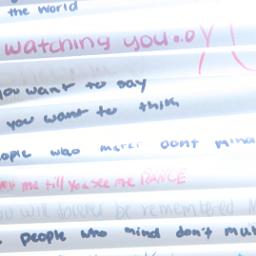 the world
watching you..oy
you want to say
you want to think
ople who matter dont mind
me till you see me DANCE
ou will forever be remembered
people who mind don't mat